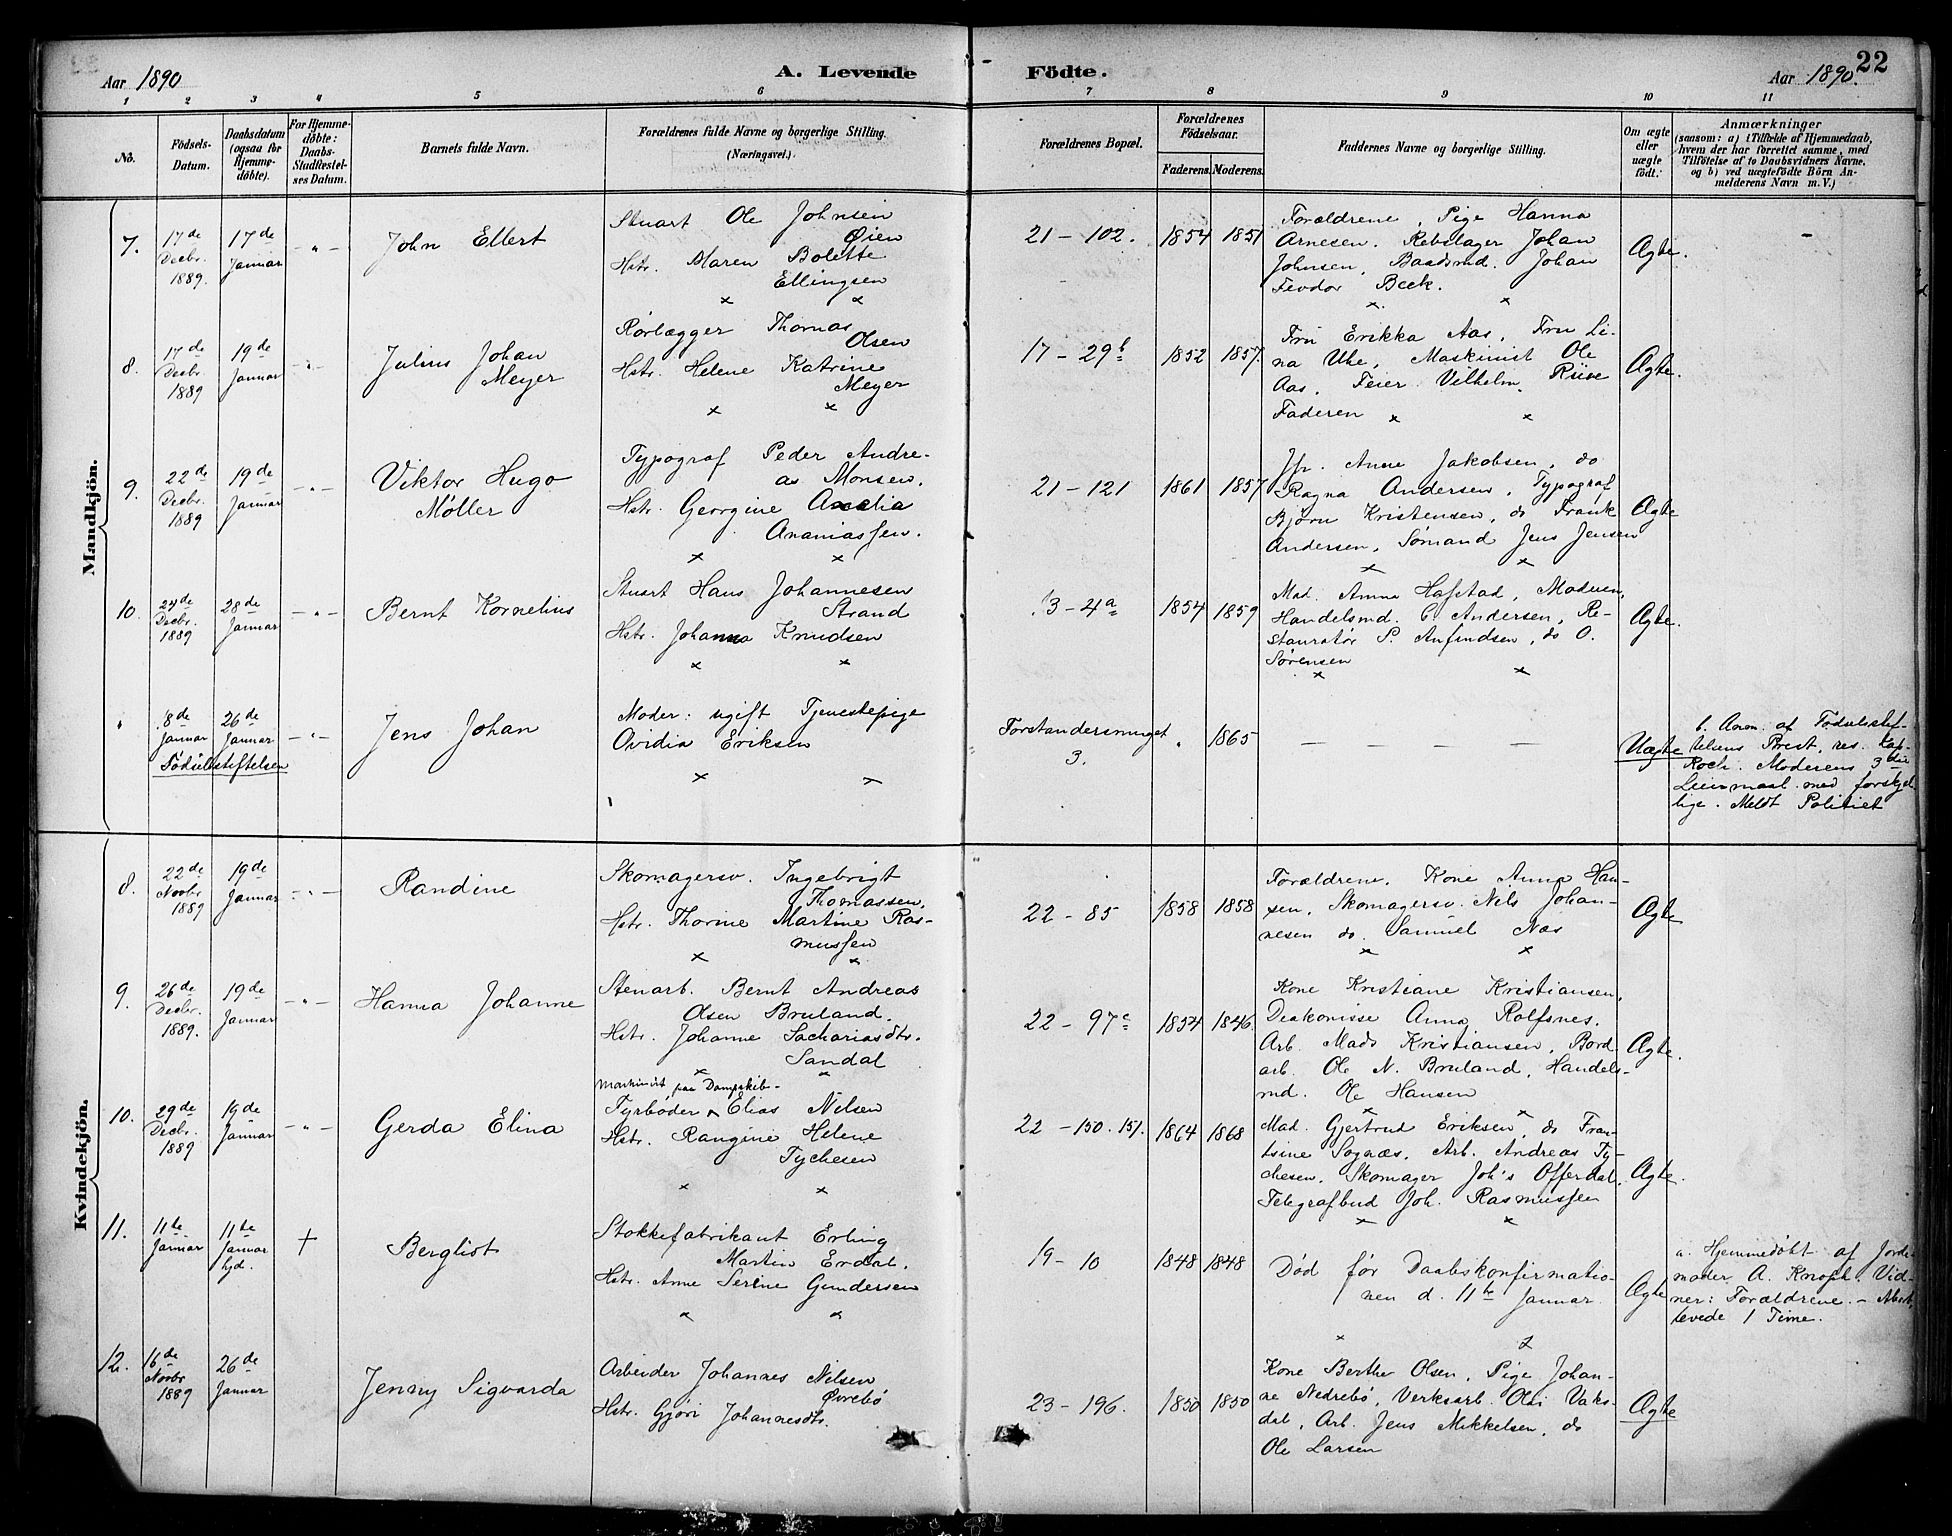 Aar 1890
A. Levende
Födte.
Aar 1890.
22
1 2 3 4 5 6 7 8 9 10 11
No.
Födsels-
Datum.
Daabsdatum
(ogsaa for
Hjemme-
döbte).
For Hjemme-
döbte:
Daabs-
Stadfæstel-
ses Datum.
Barnets fulde Navn.
Forældrenes fulde Navne og borgerlige Stilling.
(Næringsvei.)
Forældrenes Bopæl.
Forældrenes
Födselsaar.
Faderens. Moderens.
Faddernes Navne og borgerlige Stilling.
Om ægte
eller
uægte
födt.
Anmærkninger
(saasom: a) i Tilfælde af Hjemmedaab,
hvem der har forrettet samme, med
Tilföielse af to Daabsvidners Navne,
og b) ved uægtefödte Börn An-
melderens Navn m. V.)
Mandkjön.
7.
17de
Decbr.
1889.
17de
Januar
John Ellert
Stuart Ole Johnsen
Øien
Hstr. Maren Bolette
Ellingsen
21 - 102.
1854 1851
Forældrene, Pige Hanna
Arnesen. Rebslager Johan
Johnsen, Baadsmd. Johan
Fevdor Beck.
Ægte.
8.
17de
Decbr.
1889
19de
Januar
Julius Johan
Meyer
Rørlægger Thomas
Olsen
Hstr. Helene Katrine
Meyer
17 - 29b
1852 1857.
Fru Erikka Aas, Fru Li-
na Uhe, Maskinist Ole
Aas, Feier Vilhelm Riise
Faderen
Ægte.
9.
22de
Decbr.
1889
19de
Januar
Viktor Hugo
Møller
Typograf Peder Andre-
as Monsen,
Hstr. Georgine
Ananiassen.
21 - 121
1861 1857
Jfr. Anne Jakobsen, do
Ragna Andersen, Typograf
Bjørn Kristensen, do Frank
Andersen, Sømand Jens Jensen
Ægte
10.
24de
Decbr.
1889
28de
Januar
Bernt Kornelius
Stuart Hans Johannesen
Strand
Hstr. Johanna Knudsen
3 - 4a
1854 1859
Mad. Anna Hafstad, Moderen,
Handelsmd. C. Andersen, Re-
stauratør S. Anfindsen, do O.
Sørensen
Ægte.
"
8de
Januar
26de
Januar
Fødselsstiftelsen
Jens Johan
Moder: ugift Tjenestepige
Ovidia Eriksen
Forstandersmuget
3.
" 1865
Uægte
b. Anm. af Fødselsstif-
telsens Prest, res. Kap.
Koch. Moderens 3die
Leiermaal med forskjel-
lige. Meldt Politiet
Kvindekjön.
8.
22de
Novbr
1889
19de
Januar
Randine
Skomagersv. Ingebrigt
Thomassen,
Hstr. Thorine Martine Ras-
mussen
22 - 85
1858 1858
Forældrene, Kone Anna Han-
sen, Skomagersv. Nils Johan-
nesen do Samuel Næs
Ægte
9.
26de
Decbr.
1889.
19de
Januar
Hanna Johanne
Stenarb. Bernt Andreas
Olsen Bruland.
Hstr. Johanne Sachariasdtr.
Sandal
22 - 97c
1854 1846.
Kone Kristiane Kristiansen,
Diakonisse Anna Rolfsnes,
Arb. Mads Kristiansen, Bord-
arb. Ole N. Bruland, Handels-
md. Ole Hansen
Ægte.
10.
29de
Decbr.
1889
19de
Januar
Gerda Elina
Maskinist paa Dampskib-
Fyrbøder Elias Nilsen
Hstr. Rangine Helene
Tychesen
22 - 150.151.
1864 1868
Mad. Gjertrud Eriksen, do Fran-
tsine Sognæs, Arb. Andreas Ty-
chesen, Skomager Joh's Offerdal,
Telegrafbud Joh. Rasmussen
Ægte.
11.
11te
Januar
11te
Januar
hjd.
†
Bergliot
Stokkefabrikant Erling
Martin Erdal.
Hstr. Anne Serine Gundersen
19 - 10
1848 1848
Død før Daabskonfirmatio-
nen d. 11te Januar
Ægte
a. Hjemmedøbt af Jorde-
moder A. Knoph. Vid-
ner: Forældrene. -
levede 1 Time.
12.
16de
Novbr
1889
26de
Januar
Jenny Sigvarda
Arbeider Johannes Nilsen
Øvrebø
Hstr. Gjøri Johannesdtr.
23 - 196.
1850 1850
Kone Berthe Olsen, Pige Johan-
ne Nedrebø, Verksarb. Ole Vaks-
dal, Arb. Jens Mikkelsen, do
Ole Larsen
Ægte